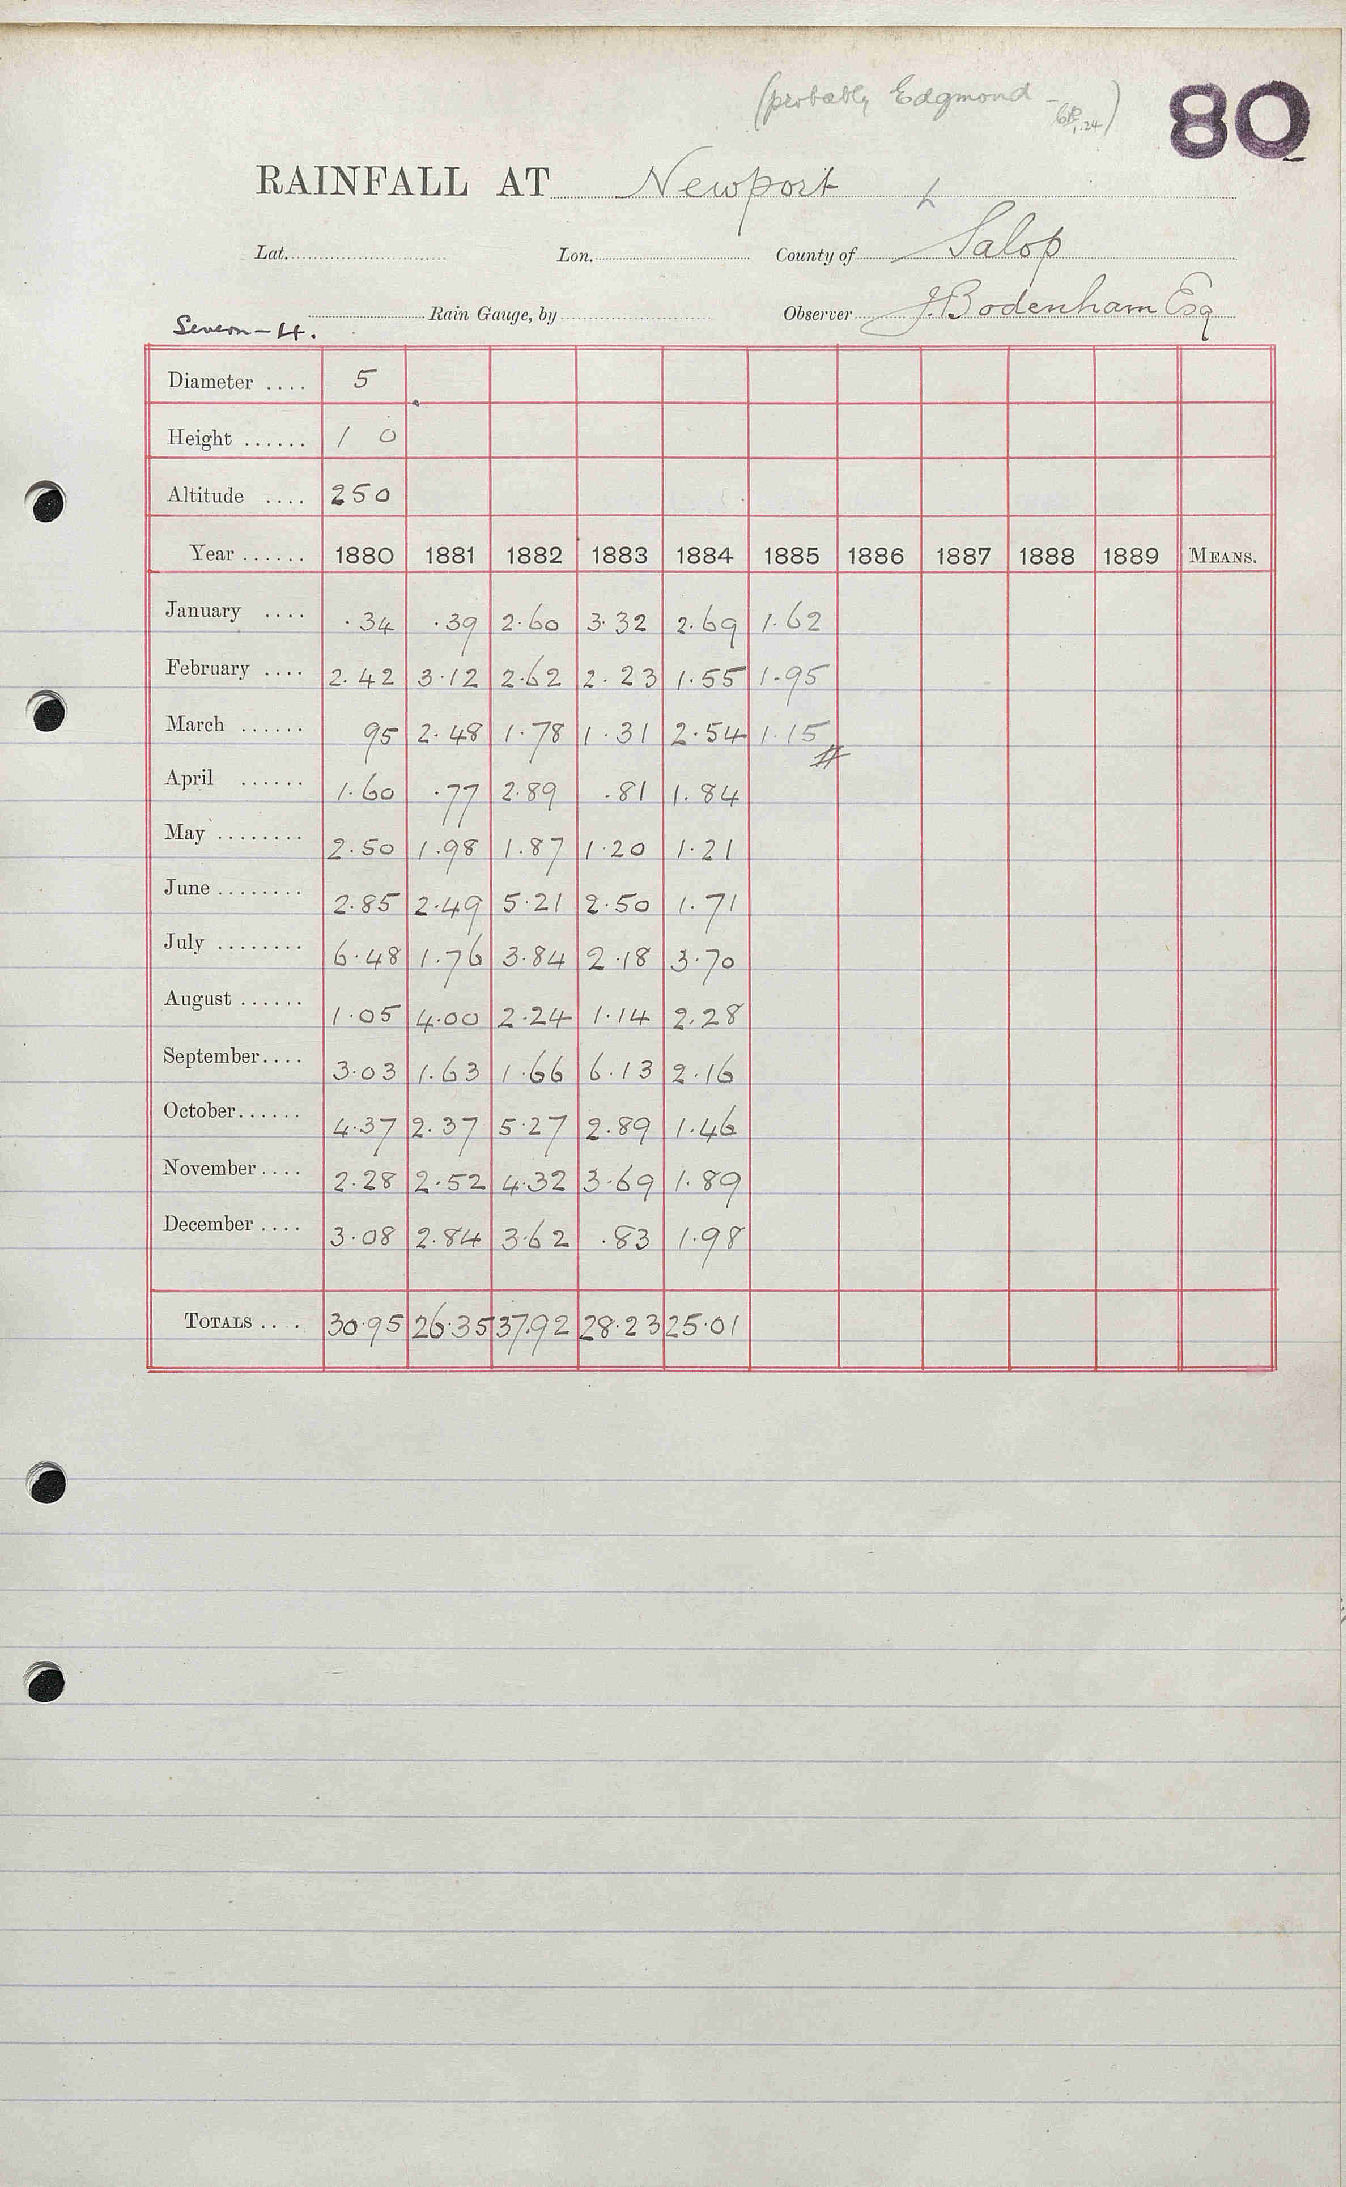 (probably Edgmond -
80
RAINFALL AT Newport
Lat. Lon. County of Salop
Rain Gauge, by Observer J. Bodenham Esq
Severn - 4.
Diameter .... 5
Height ...... 1 0
Altitude .... 250
Year ...... 1880 1881 1882 1883 1884 1885 1886 1887 1888 1889 MEANS.
January .... .34 .39 2.60 3.32 2.69 1.62
February .... 2.42 3.12 2.62 2.23 1.55 1.95
March ...... 95 2.48 1.78 1.31 2.54 1.15
April ...... 1.60 .77 2.89 .81 1.84
May ........ 2.50 1.98 1.87 1.20 1.21
June ........ 2.85 2.49 5.21 2.50 1.71
July ........ 6.48 1.76 3.84 2.18 3.70
August ...... 1.05 4.00 2.24 1.14 2.28
September.... 3.03 1.63 1.66 6.13 2.16
October...... 4.37 2.37 5.27 2.89 1.46
November.... 2.28 2.52 4.32 3.69 1.89
December .... 3.08 2.84 3.62 .83 1.98
TOTALS .... 30.95 26.35 37.92 28.23 25.01